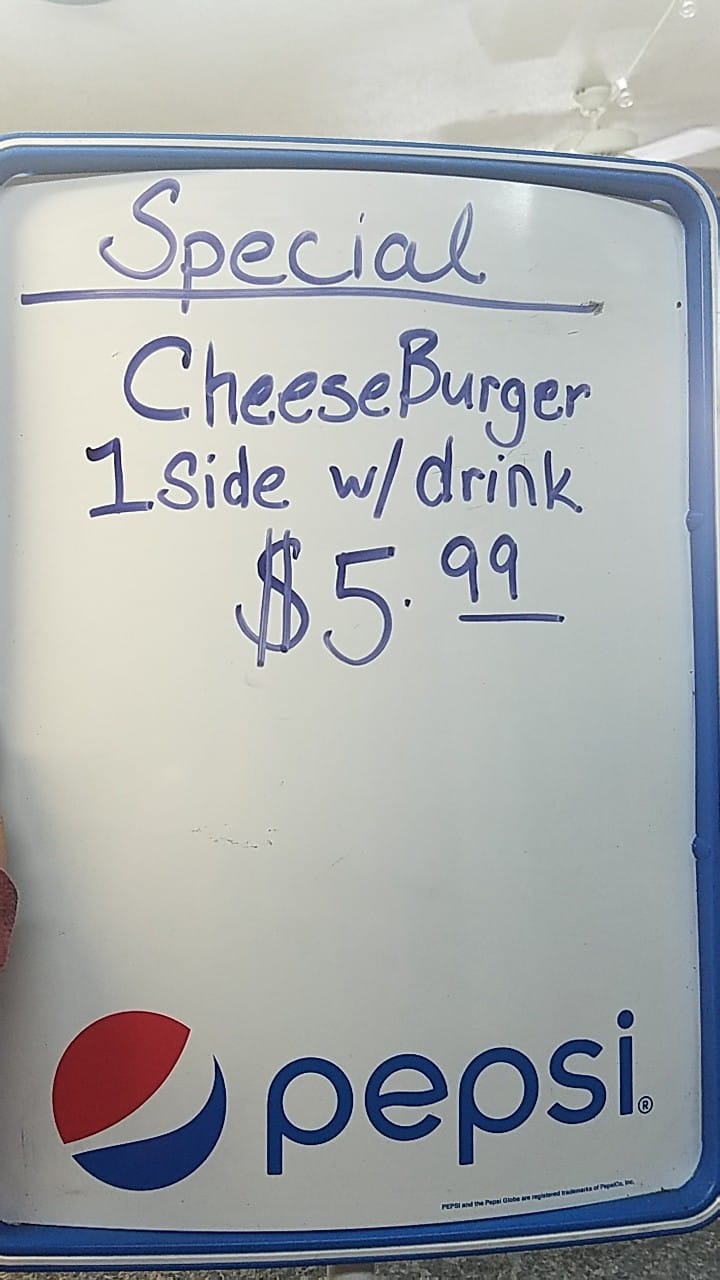 Special
CheeseBurger
1 Side w/ drink
$5.99
pepsi®
PEPSI and the Pepsi Globe are registered trademarks of PepsiCo, Inc.